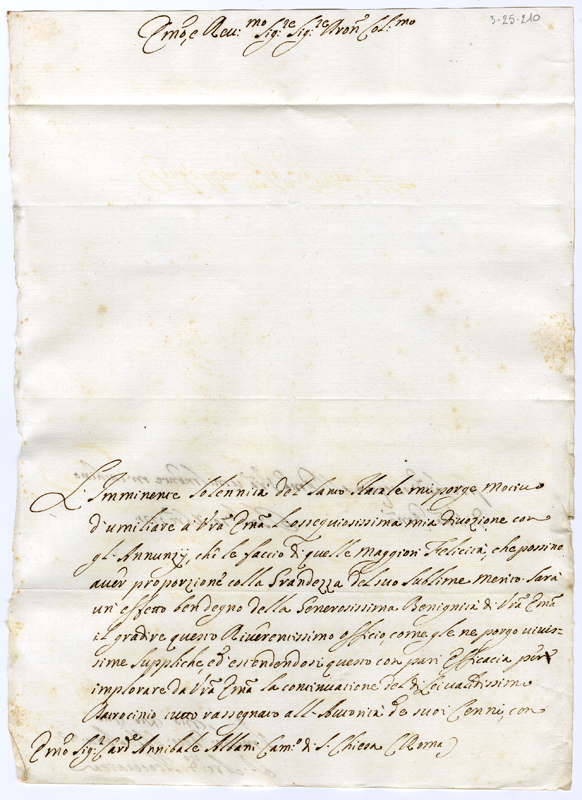 3-25-210
Emo, e Reu:mo Sig:re Sig:re Pron Col:mo
L'Imminente Solennità del Santo Natale mi porge motivo
d'umiliare à Vra Ema l'ossequiosissima mia divozione con
gl'Annunzÿ, che le faccio di quelle maggiori Felicità, che possino
auer proporzione colla Grandezza del suo sublime merito. Sarà
un' effetto ben degno della Generosissima Benignità di Vra Ema
il gradire questo Riuerentissimo offizio, come gle ne porgo viuis-
sime suppliche, ed estendendosi questo con pari Efficacia per
implorare da Vra Ema la continuazione del di Lei ualidissimo
Patrocinio tutto rassegnato all'Autorità de suoi Cenni, con
Emo Sig:r Card:e Annibale Albani Cam:o di S. Chiesa (Roma)